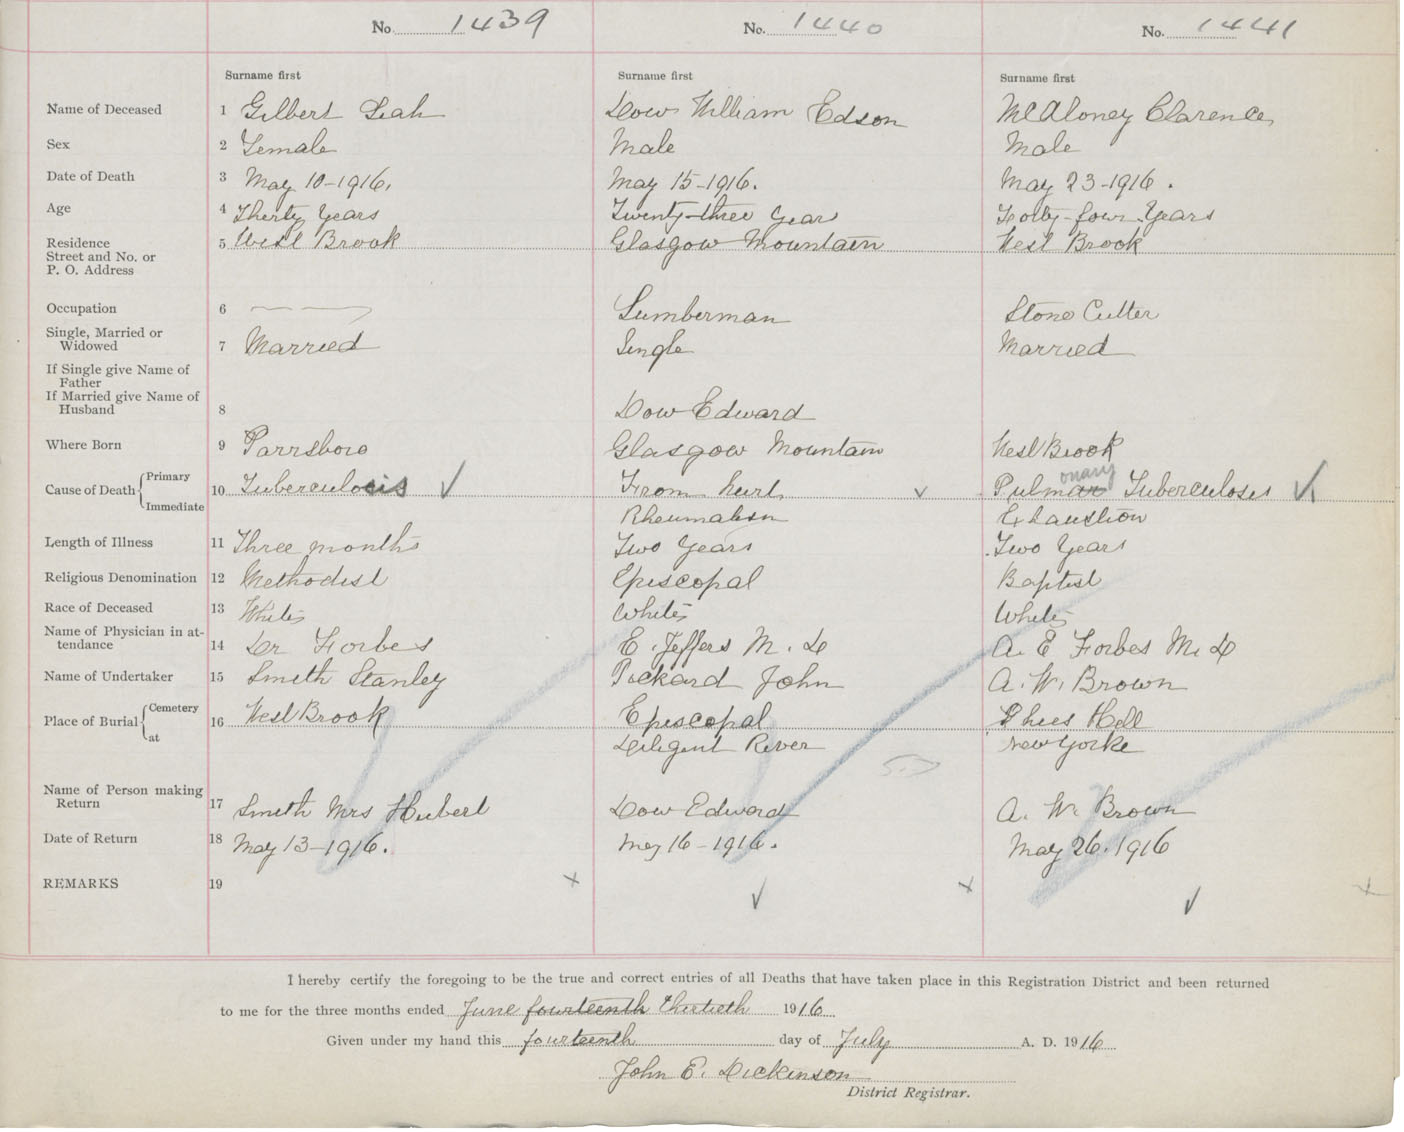 No. 1439 No. 1440 No. 1441
Surname first Surname first Surname first
Name of Deceased 1 Gilbert Leah Dow William Edson McAloney Clarence
Sex 2 Female Male Male
Date of Death 3 May 10-1916. May 15-1916. May 23-1916.
Age 4 Therty Years Twenty-three Years Forty-four Years
Residence 5 West Brook Glasgow Mountain West Brook
Street and No. or
P. O. Address
Occupation 6 Lumberman Stone Cutter
Single, Married or
Widowed 7 Married Single Married
If Single give Name of
Father
If Married give Name of
Husband 8 Dow Edward
Where Born 9 Parrsboro Glasgow Mountain West Brook
Primary onary
Cause of Death 10 Tuberculosis ✓ From hurt ✓ Pulmar Tuberculosis ✓
Immediate Rheumatism Exhaustion
Length of Illness 11 Three months Two Years Two Years
Religious Denomination 12 Methodist Episcopal Baptist
Race of Deceased 13 White White White
Name of Physician in at-
tendance 14 Dr Forbes E. Jeffers M. D A. E Forbes M. D
Name of Undertaker 15 Smith Stanley Pickard John A. W. Brown
Cemetery
Place of Burial 16 West Brook Episcopal Hill
at Diligent River New Yorke
Name of Person making
Return 17 Smith Mrs Hubert Dow Edward A. W. Brown
Date of Return 18 May 13-1916. May 16-1916. May 26.1916
REMARKS 19 x ✓ x ✓ x
I hereby certify the foregoing to be the true and correct entries of all Deaths that have taken place in this Registration District and been returned
to me for the three months ended June fourteenth thirtieth 1916
Given under my hand this fourteenth day of July A. D. 1916
John E. Dickinson
District Registrar.